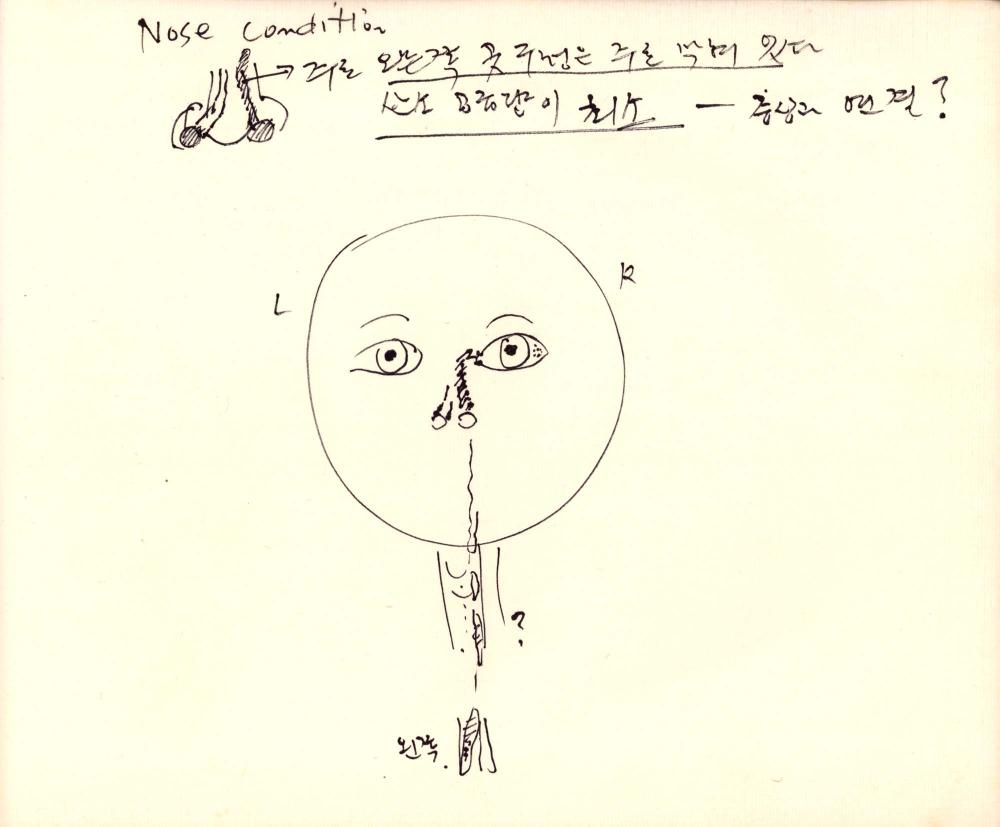 Nose condition
→ 주로 왼쪽 콧구멍은 주로 막혀 있다
산소 공급량이 최소 — 증상과 연결?
L
R
?
왼쪽.